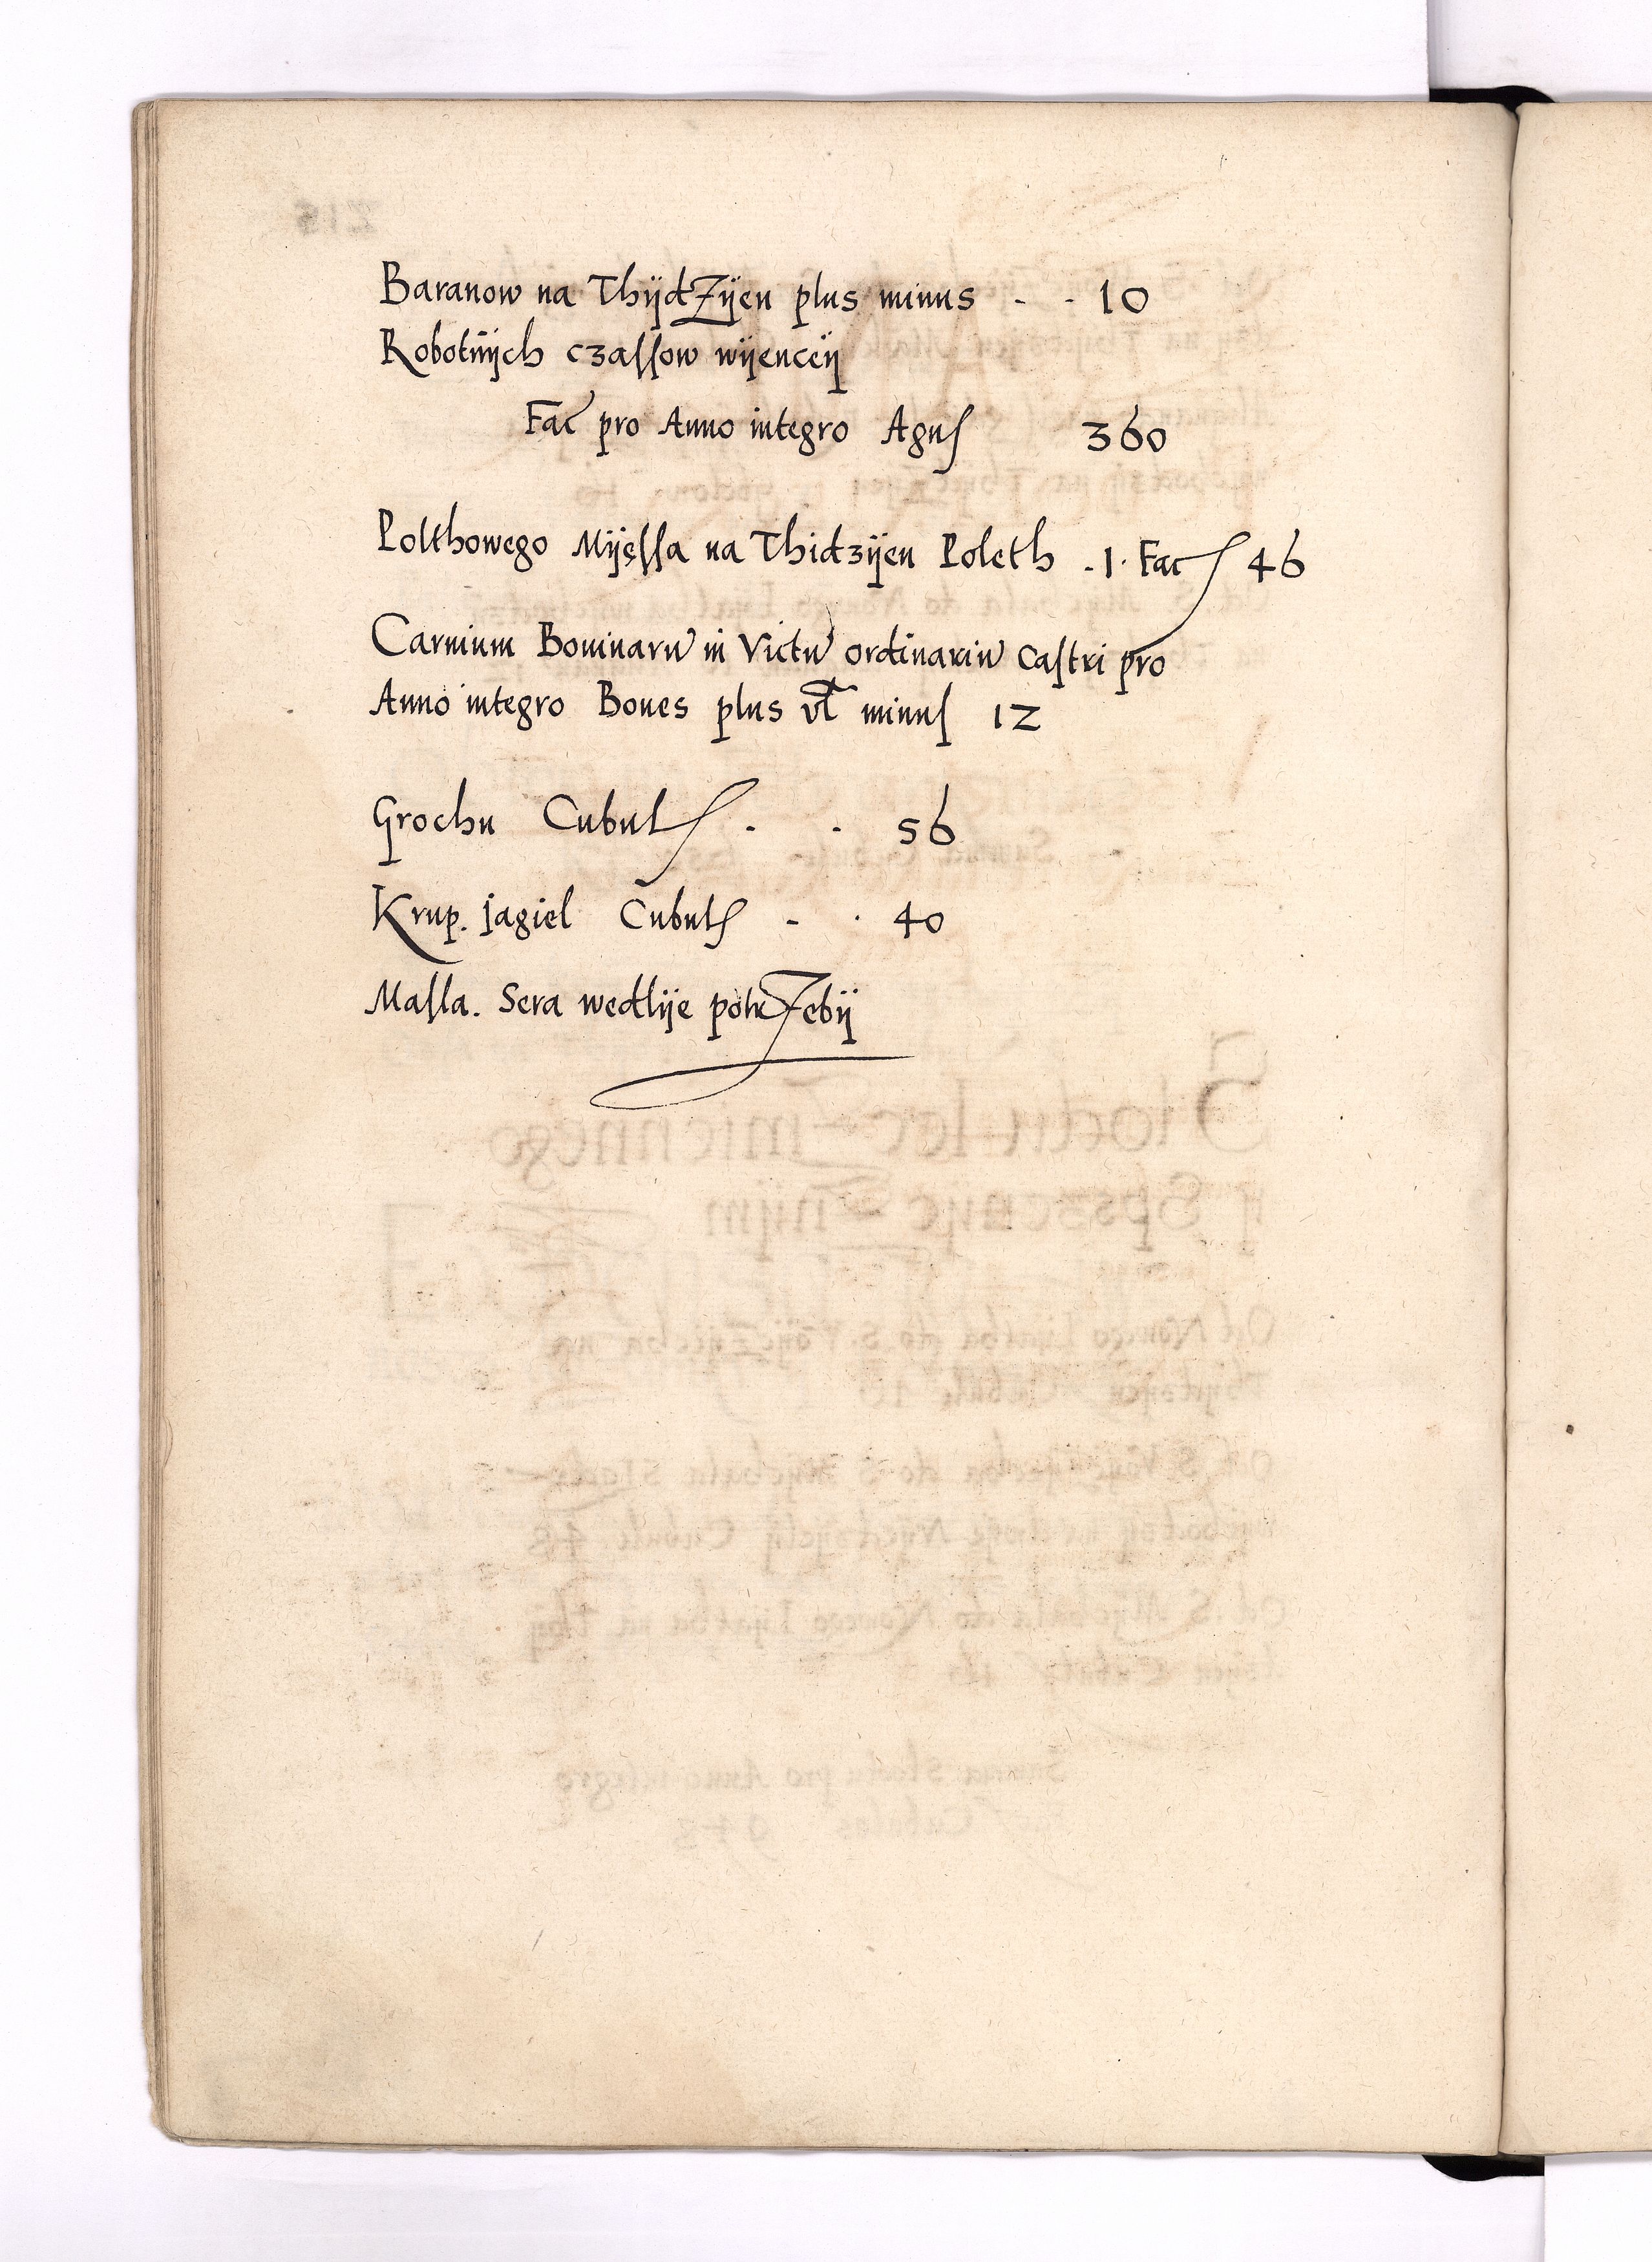 Baranow na ThÿdZÿen plus minus - - 10
Robotnÿch czaſſow wÿenceÿ
Fac pro Anno integro Agnſ 360
Polthowego Mÿęſſa na Thidzÿen Poleth .1. Fac 46
Carnium Bouinaru in Victu ordinariu caſtri pro
Anno integro Boues plus vl minuſ 12
Grochu Cubul . . 56
Krup. jagiel Cubul - . 40
Maſla. Sera wedlÿe potrZebÿ